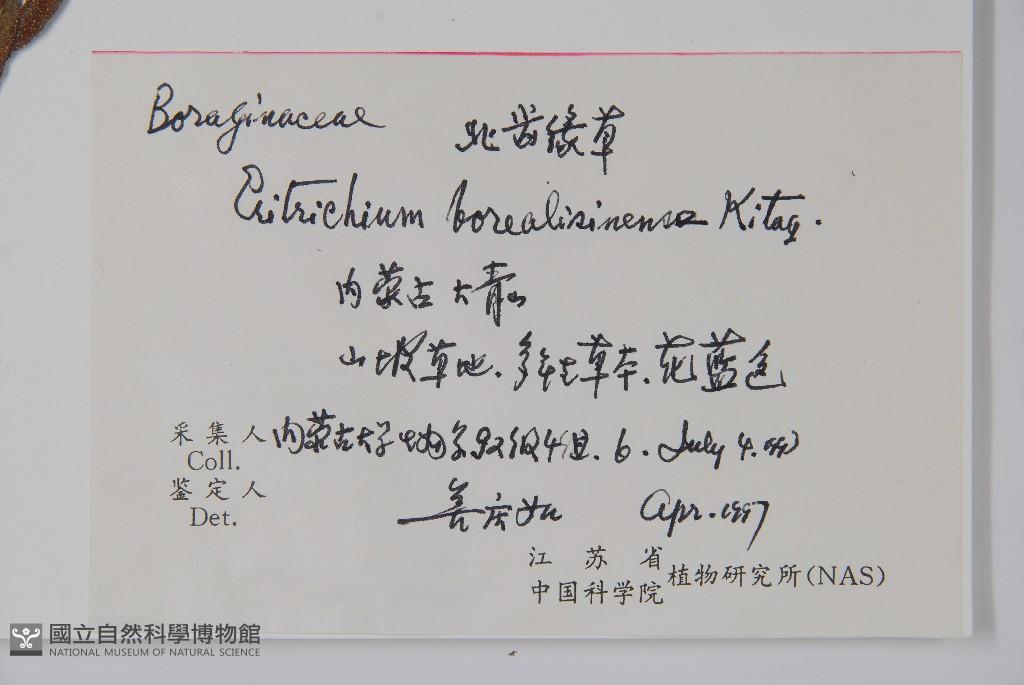 Boraginaceae 北齿缘草
Eritrichium borealisinense Kitag.
内蒙古大青山
山坡草地.多年生草本.花蓝色
采集人 内蒙古大学生物系92级4组. 6. July 4.
Coll.
鉴定人 庆如 Apr. 1997
Det.
江苏省
中国科学院 植物研究所(NAS)
國立自然科學博物館
NATIONAL MUSEUM OF NATURAL SCIENCE